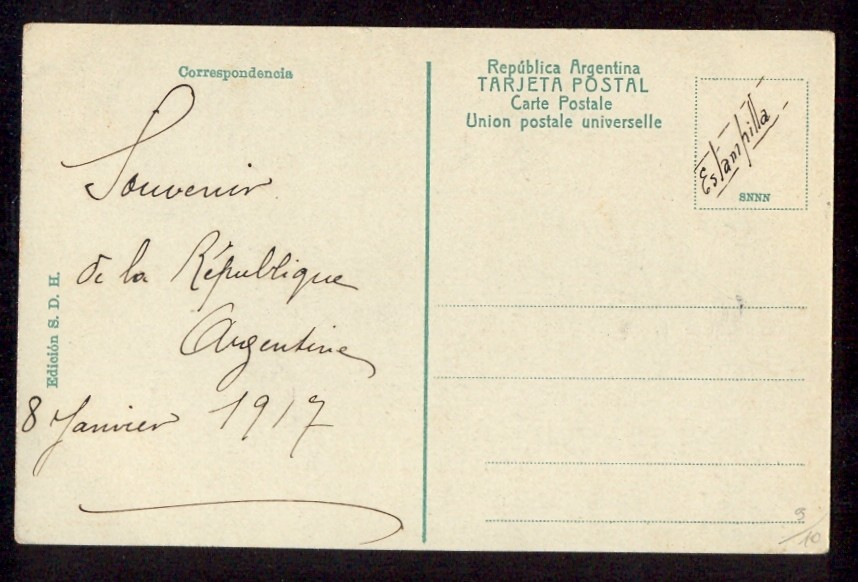 Correspondencia
Souvenir
de la République
Argentine
8 Janvier 1917
Edición S. D. H.
República Argentina
TARJETA POSTAL
Carte Postale
Union postale universelle
Estampilla
SNNN
9/10